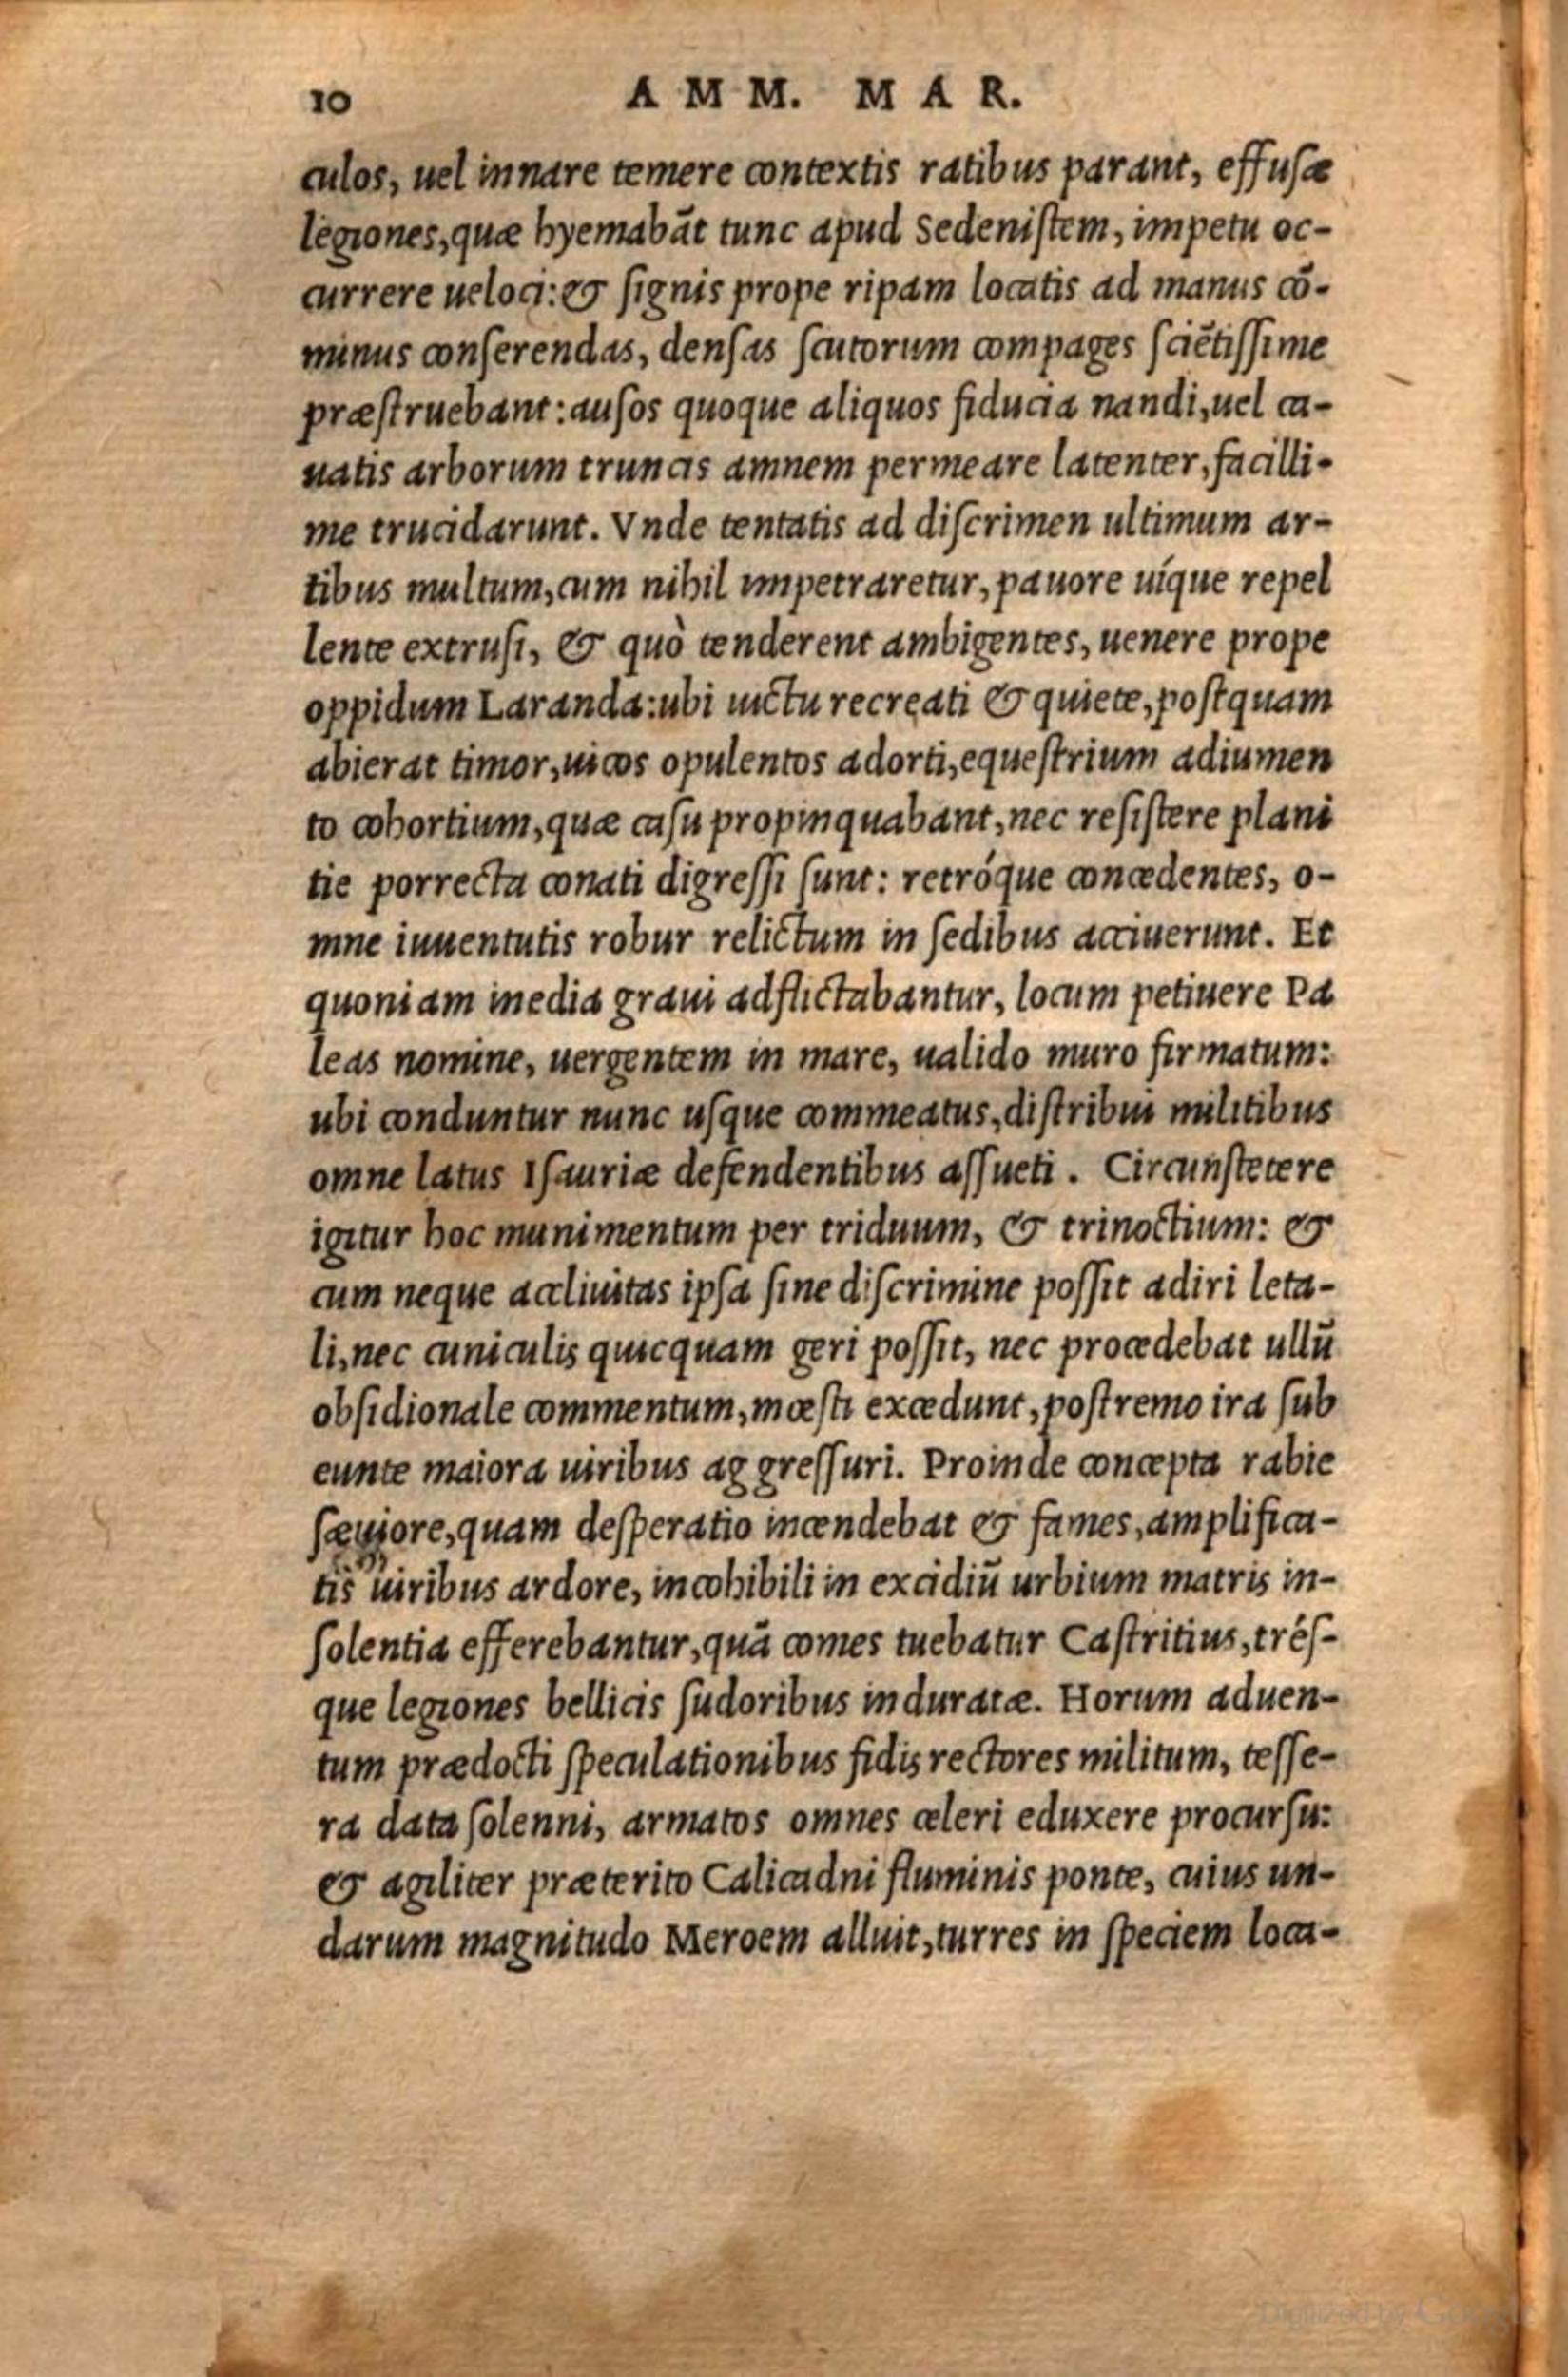 10 AMM. MAR.
culos, uel innare temere contextis ratibus parant, effusæ
legiones, quæ hyemabãt tunc apud Sedenistem, impetu oc-
currere ueloci: & signis prope ripam locatis ad manus cõ-
minus conserendas, densas scutorum compages sciẽtissime
præstruebant: ausos quoque aliquos fiducia nandi, uel ca-
uatis arborum truncis amnem permeare latenter, facilli-
me trucidarunt. Vnde tentatis ad discrimen ultimum ar-
tibus multum, cum nihil impetraretur, pauore uíque repel
lente extrusi, & quò tenderent ambigentes, uenere prope
oppidum Laranda: ubi uictu recreati & quiete, postquam
abierat timor, uicos opulentos adorti, equestrium adiumen
to cohortium, quæ casu propinquabant, nec resistere plani
tie porrecta conati digressi sunt: retróque concedentes, o-
mne iuuentutis robur relictum in sedibus acciuerunt. Et
quoniam inedia graui adflictabantur, locum petiuere Pa
leas nomine, uergentem in mare, ualido muro firmatum:
ubi conduntur nunc usque commeatus, distribui militibus
omne latus Isauriæ defendentibus assueti. Circunstetere
igitur hoc munimentum per triduum, & trinoctium: &
cum neque accliuitas ipsa sine discrimine possit adiri leta-
li, nec cuniculis quicquam geri possit, nec procedebat ullũ
obsidionale commentum, mœsti excedunt, postremo ira sub
eunte maiora uiribus aggressuri. Proinde concepta rabie
sæuiore, quam desperatio incendebat & fames, amplifica-
tis uiribus ardore, incohibili in excidiũ urbium matris in-
solentia efferebantur, quã comes tuebatur Castritius, trés-
que legiones bellicis sudoribus induratæ. Horum aduen-
tum prædocti speculationibus fidis rectores militum, tesse-
ra data solenni, armatos omnes celeri eduxere procursu:
& agiliter præterito Calicadni fluminis ponte, cuius un-
darum magnitudo Meroem alluit, turres in speciem loca-
Digitized by Google